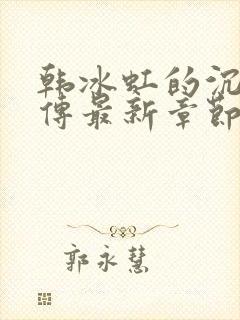 韩冰虹的沉
傅最新章節
郭永慧